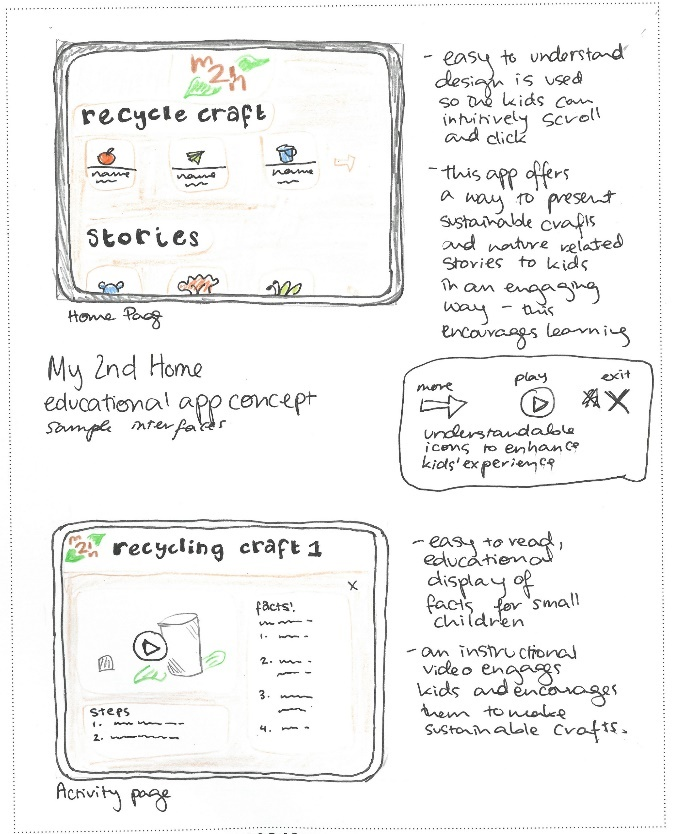 m2h
recycle craft
name
name
name
stories
Home Page
- easy to understand
design is used
so the kids can
intuitively scroll
and click
- this app offers
a way to present
sustainable crafts
and nature related
stories to kids
in an engaging
way - this
encourages learning
My 2nd Home
educational app concept
sample interfaces
more
play
exit
understandable
icons to enhance
kids' experience
m2h
recycling craft 1
x
facts:
1.
2.
3.
4.
steps
1.
2.
Activity page
- easy to read,
educational
display of
facts for small
children
- an instructional
video engages
kids and encourages
them to make
sustainable crafts.